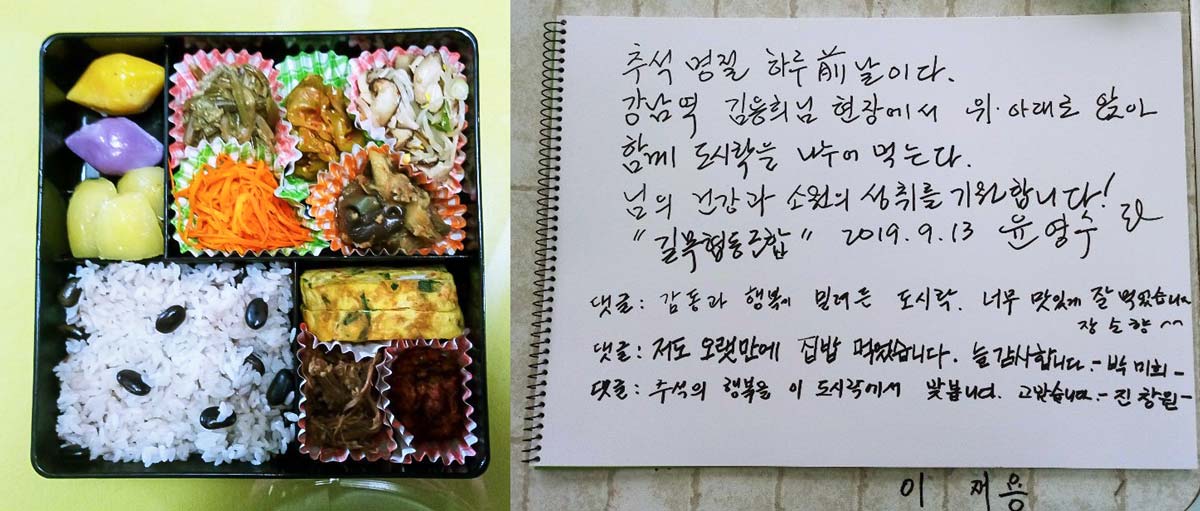 추석 명절 하루 前 날이다.
강남역 김용희님 현장에서 위·아래로 앉아
함께 도시락을 나누어 먹는다.
님의 건강과 소원의 성취를 기원합니다!
"길목협동조합" 2019.9.13 윤영수
댓글: 감동과 행복이 밀려든 도시락. 너무 맛있게 잘 먹었습니다
장소향 ^^
댓글: 저도 오랫만에 집밥 먹었습니다. 늘 감사합니다. - 박미희 -
댓글: 추석의 행복을 이 도시락에서 맞봅니다. 고맙습니다. - 진창원 -
이재용